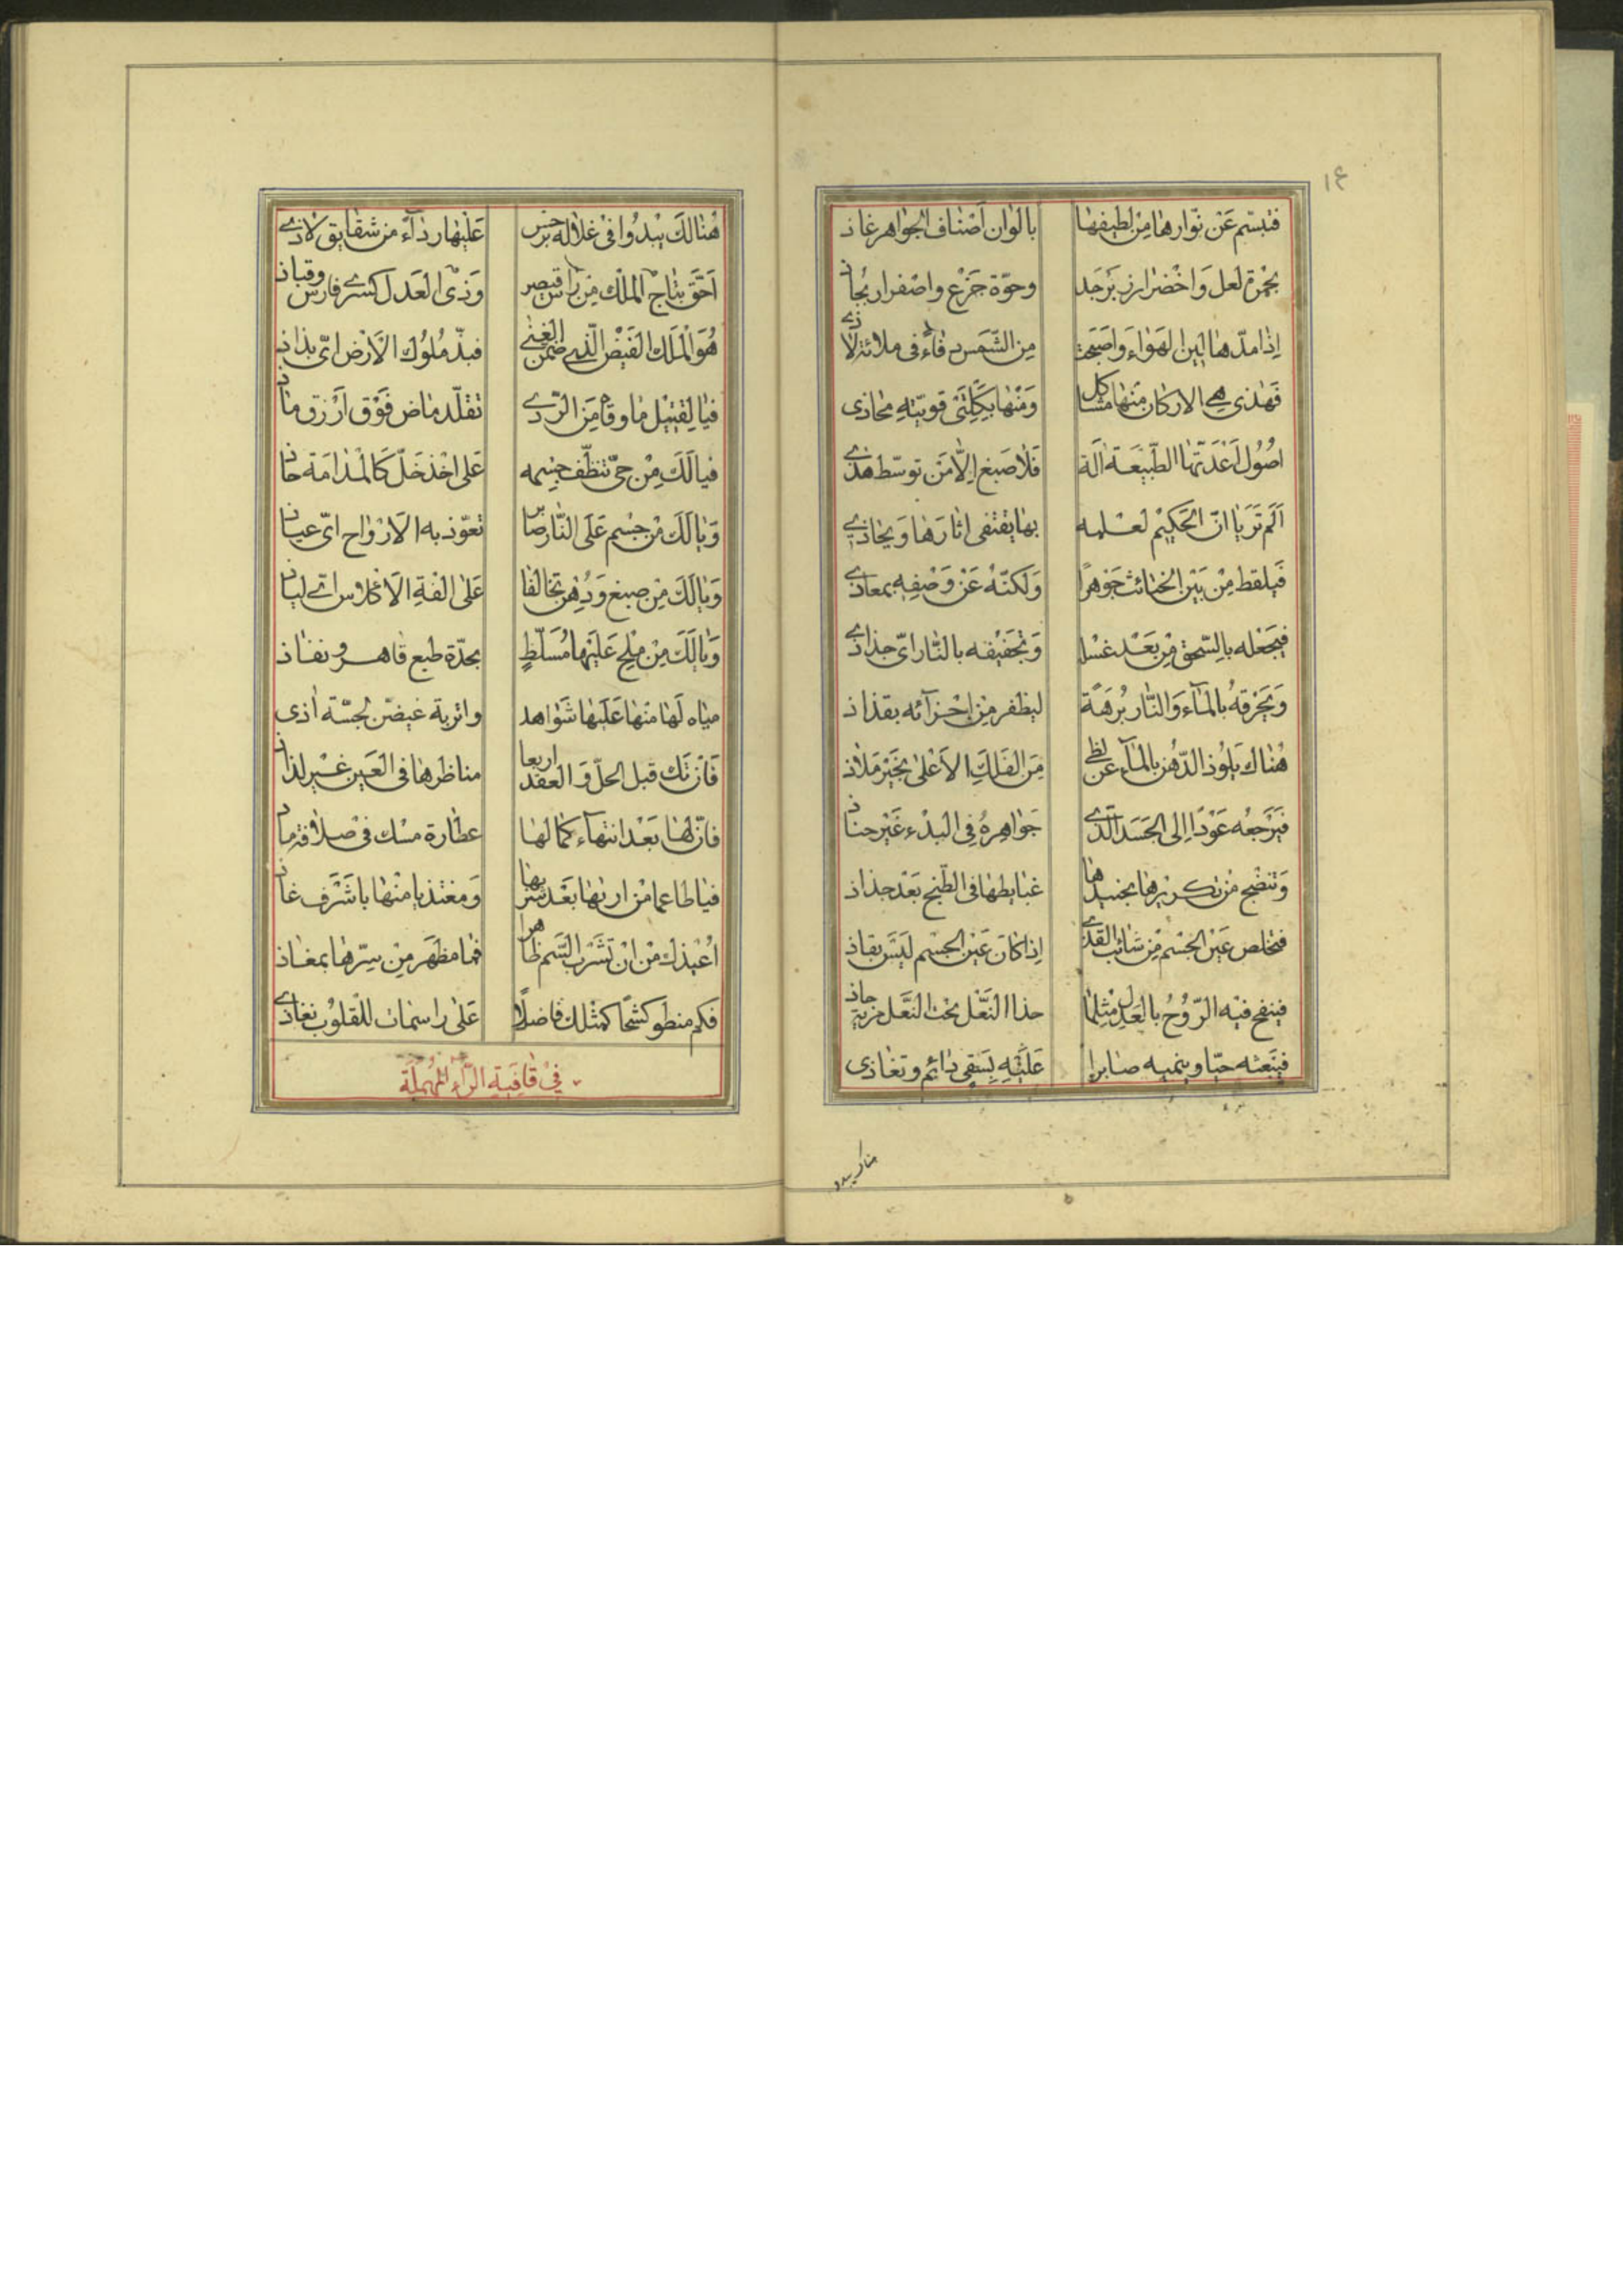 ١٤
فتبسّم عَن نوّارها مِن لطيفها بالوان اَصْناف الجواهر غاذ
بحُمرة لعل وَاخْضرار زبَرجَد وحوّة جَزْع واصْفرار بُجاذ
اِذا مدّها لين الهَواء وَاَصبَحت مِن الشَّمس دفاء فى ملاءة لاذى
فَهٰذى هى الاركان منها مشاكل وَمنْها بِكِلتَى قويّته محاذى
اصُول اَعَدّتها الطّبيْعَة آلة فَلا صبغ اِلّا مَن توسّط هذى
اَلَم تَرَيا انّ الحَكيْم لعلمه بها يقتفى اثارَها وَيحاذى
فَيلقط مِنْ بَيْن الخبائث جَوْهرًا وَلكنّهُ عَنْ وَصْفِه بمعاذى
فيَجعَله بالسّحق مِن بَعْد غسْله وَتجْفيْفه بالنّار اىّ جذاذى
وَيحْرقهُ بالمَاء وَالنّار بُرهَةً ليظفر مِن اجْزآئه بقذاذ
هُناك يَلُوذ الدّهن بالمآء عن لظى مِن الفَلكِ الاَعْلى بخَيْر مَلاذ
فيَرجعُه عَوْدًا اِلى الجَسَد الّذى جَواهِرهُ فى البدْء غَيْر حناذ
وَتنضْج من تكريرها بجنيدها غبايطها فى الطّبخ بَعْد حذاذ
فتخلص عَيْن الجسْم مِن شائب القذى اِذا كانَ عَيْن الجسْم لَيْسَ بقاذ
فينفخ فيْه الرّوْحُ بالعَدل مثلما حذا النَّعْل تحت النَّعْل خربة حاذ
فيَبعَثه حيّا وينميه صابرا عَليْهِ بِسَقى دائم وتغاذى
هناك يبدو
هُنالكَ يبْدُوا فى غلالة نرجس عَليْها رداء من شقايق لاذى
اَحَقّ بتاج المُلك مِن رَاس قيصر وَذى العَدل كسرى فارس وقباذ
هُوَ الْمَلك الفَيْض الّذى ضمن الغنى فبذّ مُلوُك الاَرْض اىّ بذاذ
فيا لِقتيْل ما وقاه مِنَ الرّدى تقلّد ماض فَوْق اَزْرق ماذ
فيا لَكَ مِنْ حىّ تنظّف جسمه عَلى اخْذ خلّ كالْمُدامَة حاذ
وَيا لَكَ مِنْ جسْم عَلَى النّار صابر تعوّذ به الاَرْواح اىّ عياذ
وَيا لَكَ مِن صبغ وَدُهن تخالفا عَلى الفة الاَخلاوس اى لياذ
وَيا لَكَ مِنْ مِلح عَليْهما مُسَلّطٍ بحدّة طبع قاهر ونفاذ
مياه لَها منها عَليها شَواهد واتربة غيضن لحسّة اَذى
فَاِن تك قبل الحلّ وَالعقد اربعا مناظرها فى العَين غيْر لذاذ
فانّ لها بَعْد انتهاء كمالها عطارة مسك فى صلاقة ماذ
فيا طاعما من اريها بَعْد شربها وَمغتذيا منْها باشَرَف غاذ
اُعيْذك منْ انْ تَشْرب السَّم ظاهرا فما مظهَر مِنْ سِرّها بمغاذ
فكم منطو كشحًا كمثلك فاضلًا عَلى راسمات للقلوُب نغاذى
فى قافية الرّاء المُهملَة